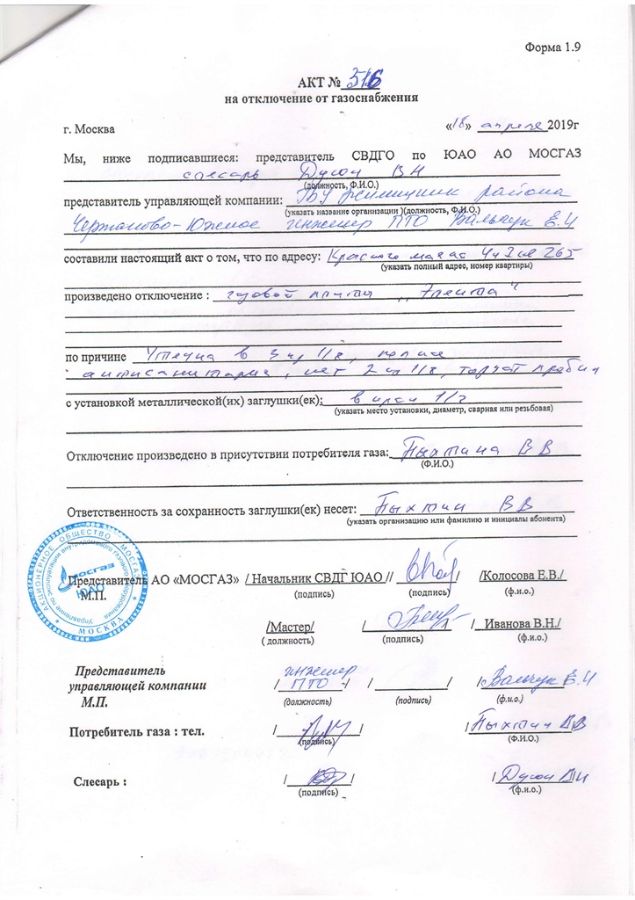 Форма 1.9
АКТ № 516
на отключение от газоснабжения
г. Москва «18» апреля 2019г
Мы, ниже подписавшиеся: представитель СВДГО по ЮАО АО МОСГАЗ
слесарь В Н
(должность, Ф.И.О.)
представитель управляющей компании: ГБУ Жилищник района
(указать название организации)(должность, Ф.И.О.)
Чертаново-Южное инженер ПТО Вальчук Е.И
составили настоящий акт о том, что по адресу: Красного маяка 265
(указать полный адрес, номер квартиры)
произведено отключение : плиты
по причине Утечка в
антисанитария, нет 2
с установкой металлической(их) заглушки(ек):
(указать место установки, диаметр, сварная или резьбовая)
Отключение произведено в присутствии потребителя газа: Пыхтина В В
(Ф.И.О.)
Ответственность за сохранность заглушки(ек) несет: Пыхтин В В
(указать организацию или фамилию и инициалы абонента)
АКЦИОНЕРНОЕ ОБЩЕСТВО "МОСГАЗ"
мосгаз
ЮАО
МОСКВА
Представитель АО «МОСГАЗ» / Начальник СВДГ ЮАО // / /Колосова Е.В./
М.П. (подпись) (подпись) (ф.и.о.)
/Мастер/ / / / Иванова В.Н./
( должность) (подпись) (ф.и.о.)
Представитель инженер
управляющей компании / ПТО / / / / Вальчук Е.И
М.П. (должность) (подпись) (ф.и.о.)
Потребитель газа : тел. / / / Пыхтин В В
(подпись) (Ф.И.О.)
Слесарь : / / / В Н
(подпись) (ф.и.о.)